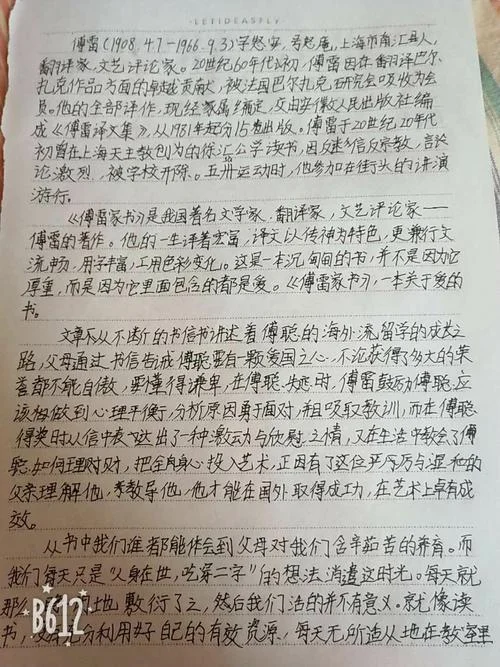 ·LETIDEASFLY·
傅雷(1908.4.7-1966.9.3)字怒安,号怒庵,上海市南汇县人,
翻译家,文艺评论家。20世纪60年代初,傅雷因在翻译巴尔
扎克作品方面的卓越贡献,被法国巴尔扎克研究会吸收为会
员。他的全部译作,现经家属编定,交由安徽人民出版社编
成《傅雷译文集》,从1981年起分15卷出版。傅雷于20世纪20年代
初曾在上海天主教创办的徐汇公学读书,因反迷信反宗教,言论
论激烈,被学校开除。五卅运动时,他参加在街头的讲演
游行。
《傅雷家书》是我国著名文学家,翻译家,文艺评论家——
傅雷的著作。他的一生译著宏富,译文以传神为特色,更兼行文
流畅,用字丰富,工用色彩变化。这是一本沉甸甸的书,并不是因为它
厚重,而是因为它里面包含的都是爱。《傅雷家书》,一本关于爱的
书。
文章从不断的书信书讲述着傅聪的海外流留学的成长之
路,父母通过书信告诫傅聪要有一颗爱国之心,不论获得了多大的荣
誉都不能自傲,要懂得谦卑,在傅聪失意时,傅雷鼓励傅聪应
该做到心理平衡,分析原因勇于面对,并且吸取教训,而在傅聪
得奖时从信中表达出了一种激动与欣慰之情,又在生活中教会了傅
聪如何理财,把全身心投入艺术,正因有了这位严厉与温和的
父亲理解他,教导他,他才能在国外取得成功,在艺术上卓有成
效。
从书中我们谁都能体会到父母对我们含辛茹苦的养育。而
我们每天只是“人身在世,吃穿二字”的想法消遣这时光。每天就
那么地敷衍了之,然后我们活的并不有意义。就像读
书,分利用好自己的有效资源,每天无所适从地在教室里
B612